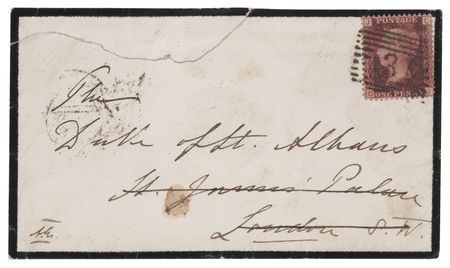 POSTAGE
3
ONE PENNY
The
Duke of St. Albans
St. James' Palace
London S.W.